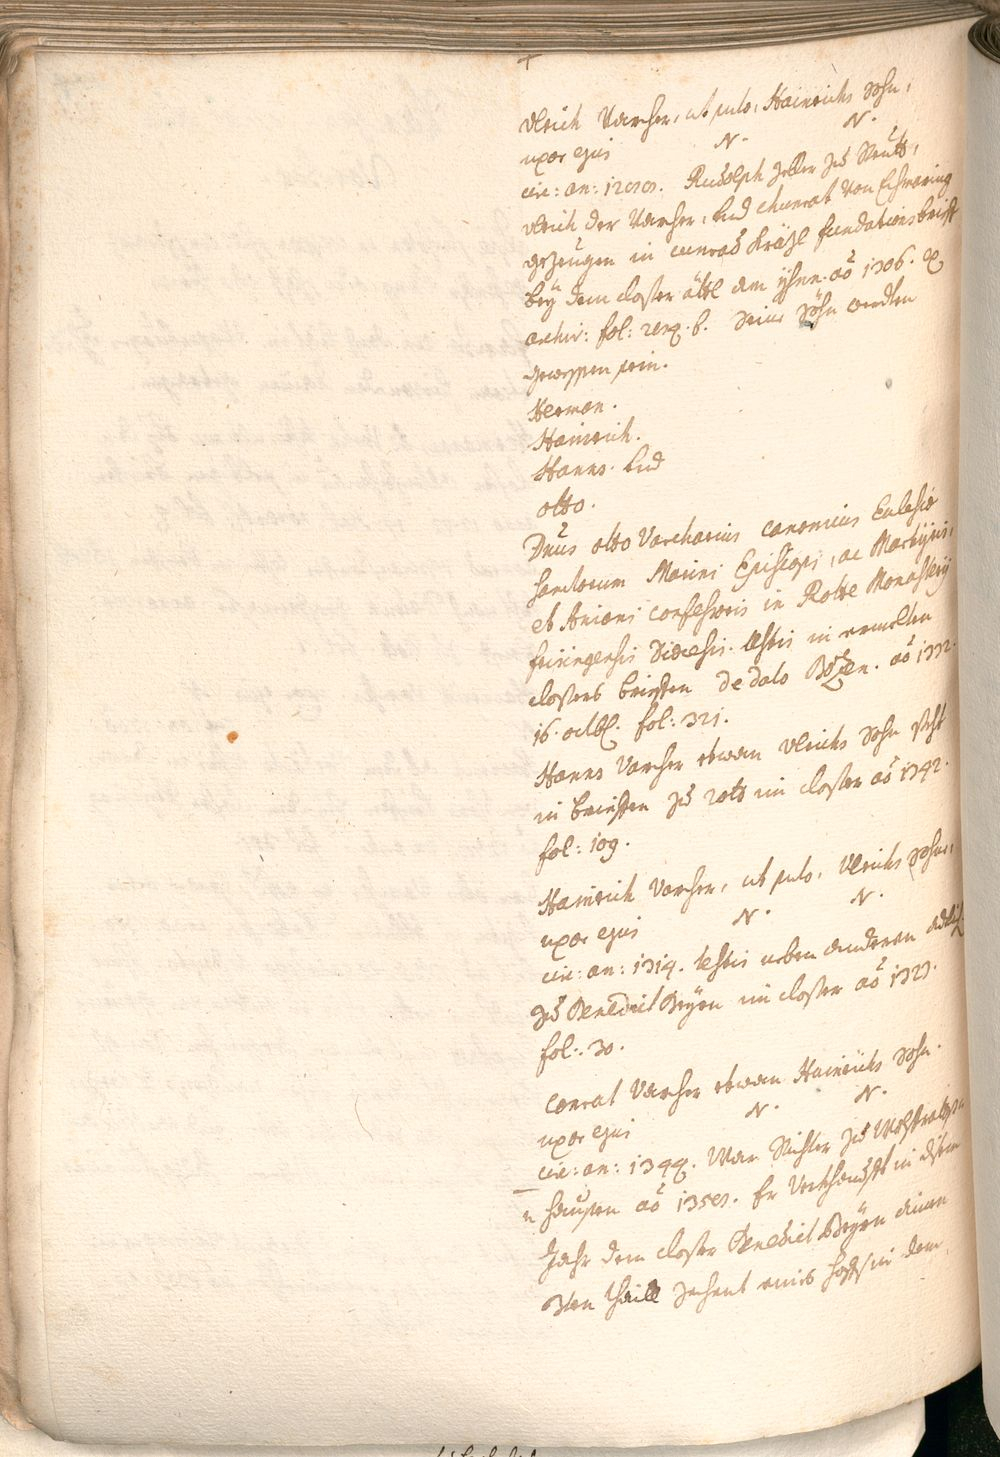 +
Vlrich Varcher, ut puto, Hainrichs Sohn,
uxor ejus N. N.
vix: an: 1299. Rudolph Zeller zu Reütt,
Vlrich der Varcher, und Chunrat von
gezeugen in cunrad fundationsbrieff
bey dem closter ättl am yhnn. aõ 1306. ex
archiv: fol: 229. b. Seine Söhn werdten
gewessen sein.
Herman.
Hainrich.
Hanns. und
otto.
Dnus otto Varcharius canonicus Eclesiæ
sanctorum Marini Episcopi, ac Martyris,
et Aniani confessoris in Rotte Monastery
frisingensis Dioecesis. testis in
closters brieffen de dato Bozen. aõ 1332.
16. octb. fol: 321.
Hanns Varcher etwan Vlrichs Sohn steht
in brieffen zu Rott im closter aõ 1342.
fol: 109.
Hainrich Varcher, ut puto, Vlrichs Sohn,
uxor ejus N. N.
vix: an: 1319. testis neben anderen adl:
zu Benedict Beyrn im closter aõ 1323.
fol: 30.
Conrat Varcher etwan Hainrichs Sohn.
uxor ejus N. N.
vix: an: 1349. War Richter zu Wolfrats
haussen aõ 1359. Er verkhaufft in disem
Jahr dem closter Benedict Beyrn ainen
3ten thaill zehent aines hoffs in dem